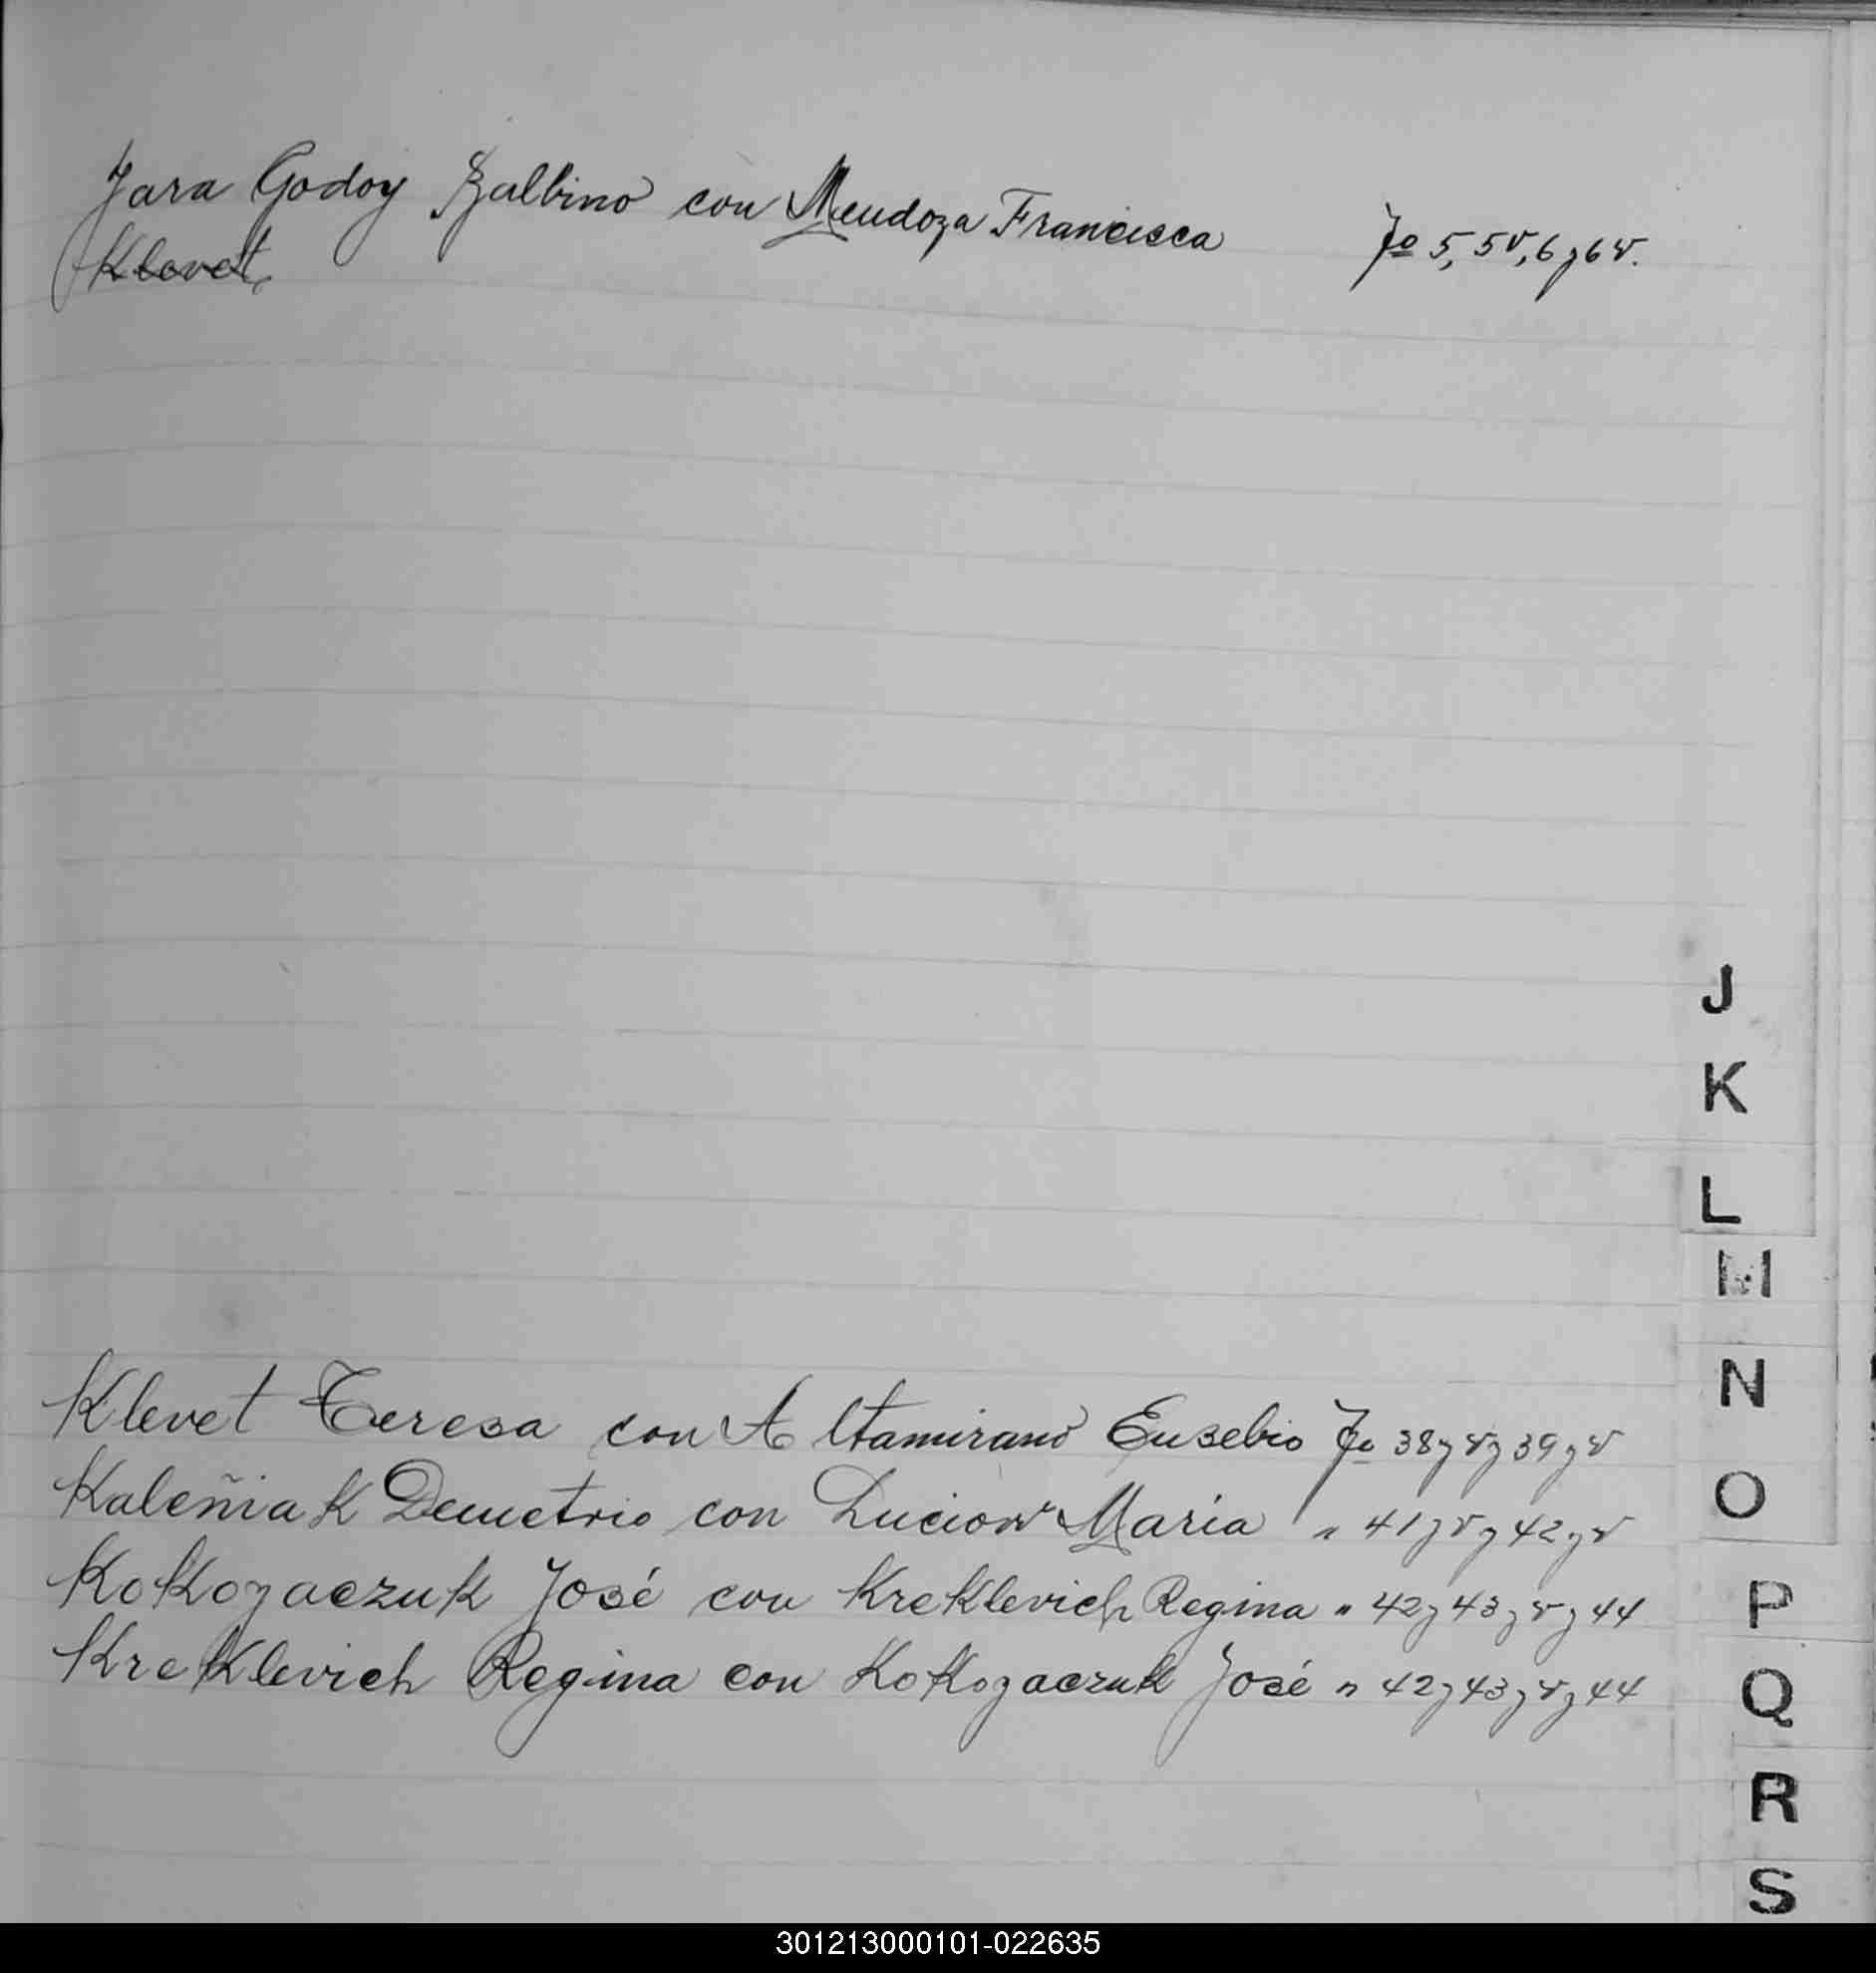 Jara Godoy Balbino con Mendoza Francisca Fo 5, 5v, 6 y 6 v.
Klevet
J
K
L
M
N
O
P
Q
R
S
Klevet Teresa con Altamirano Eusebio Fo 38 y v y 39 y v
Kaleñiak Demetrio con Luciow María " 41 y v y 42 y v
Kokozaczuk José con Kreklevich Regina " 42 y 43 y v y 44
Kreklevich Regina con Kokozaczuk José " 42 y 43 y v y 44
301213000101-022635